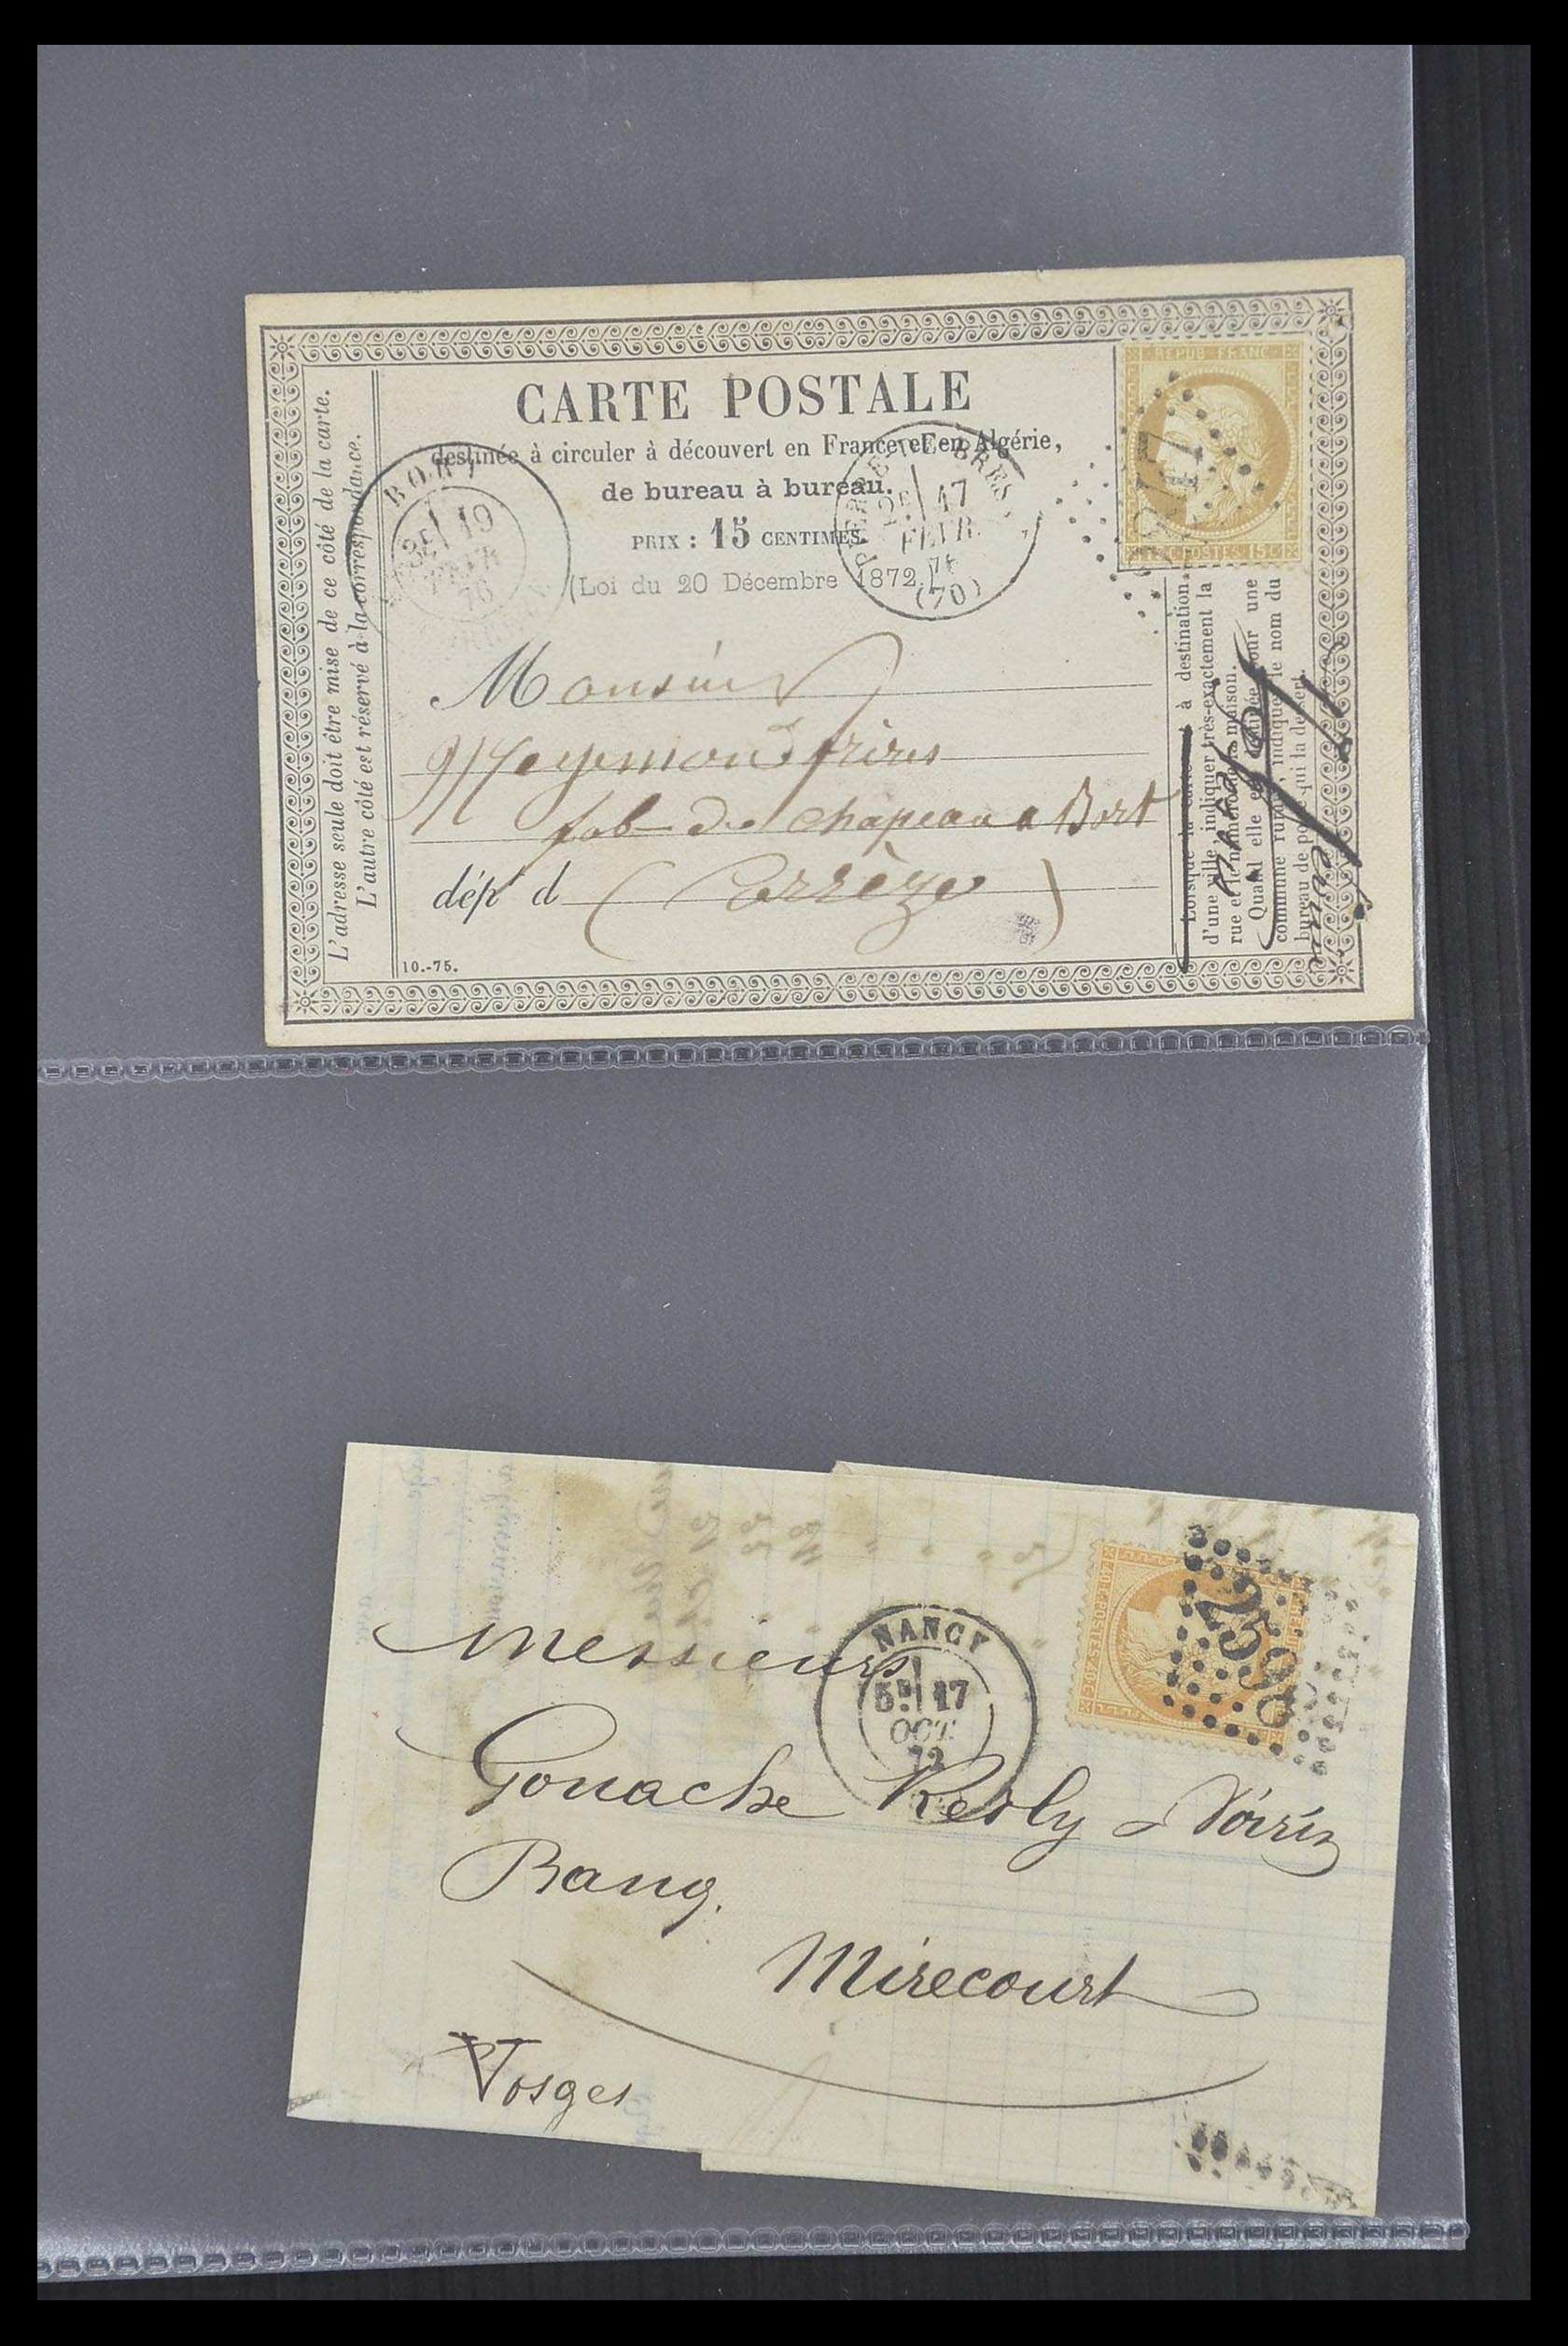 CARTE POSTALE
destinée à circuler à découvert en France et en Algérie,
de bureau à bureau.
PRIX : 15 CENTIMES.
(Loi du 20 Décembre 1872.)
L'adresse seule doit être mise de ce côté de la carte.
L'autre côté est réservé à la correspondance.
BORT
3E 19
FEVR
76
2E 17
FEVR.
76
(70)
REPUB FRANC
POSTES 15 C
Monsieur
Meymond frères
fab de chapeau a Bort
dép d (Corrèze)
10.-75.
Lorsque la carte à destination
d'une ville, indiquer très-exactement la
rue et le numéro de la maison.
Quand elle est pour une
commune rurale, indiquer le nom du
bureau de poste qui la dessert.
NANCY
5E 17
OCT.
72
Messieurs
Gouache Resly & Voirin
Banq.
Mirecourt
Vosges